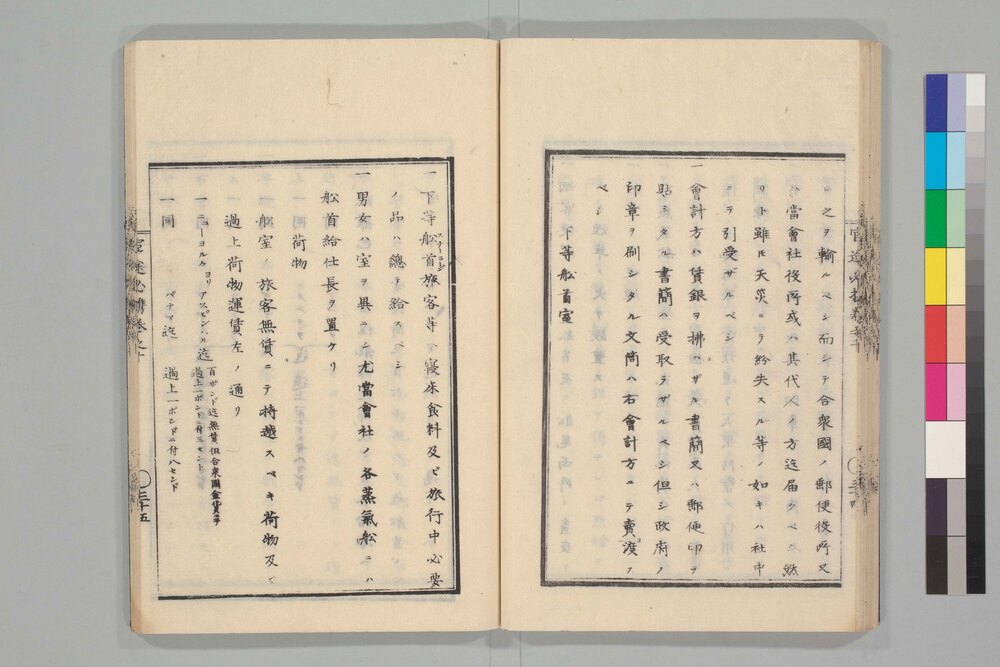 シ之ヲ輸ルベシ而シテ合衆國ノ郵便役所又
ハ當會社役所或ハ其代人ノ方迄届クベシ然
リト雖𪜈天災ニヨリ紛失スル等ノ如キハ社中
ニテ引受ザルベシ
一會計方ハ賃銀ヲ拂ハザル書簡又ハ郵便印ヲ
貼シタル書簡ハ受取ラザルベシ但シ政府ノ
印章ヲ刷シタル文筒ハ右會計方ニテ賣渡ス
ベシ
下等舩首室
一下等舩首旅客等ハ寢床食料及ビ旅行中必要
ノ品ハ總テ給スベシ
一男女ハ室ヲ異ニシ尤當會社ノ各蒸氣舩ニハ
舩首給仕長ヲ置ケリ
一同荷物
一舩室ノ旅客無賃ニテ持越スベキ荷物及ビ
過上荷物運賃左ノ通リ
一ニューヨルクヨリアスピンハル迄 百ポンド迄無賃但合衆國金貨ニテ
過上一ポンドニ付三セント
一同 パナマ迄 過上一ポンドニ付八セント
三十五